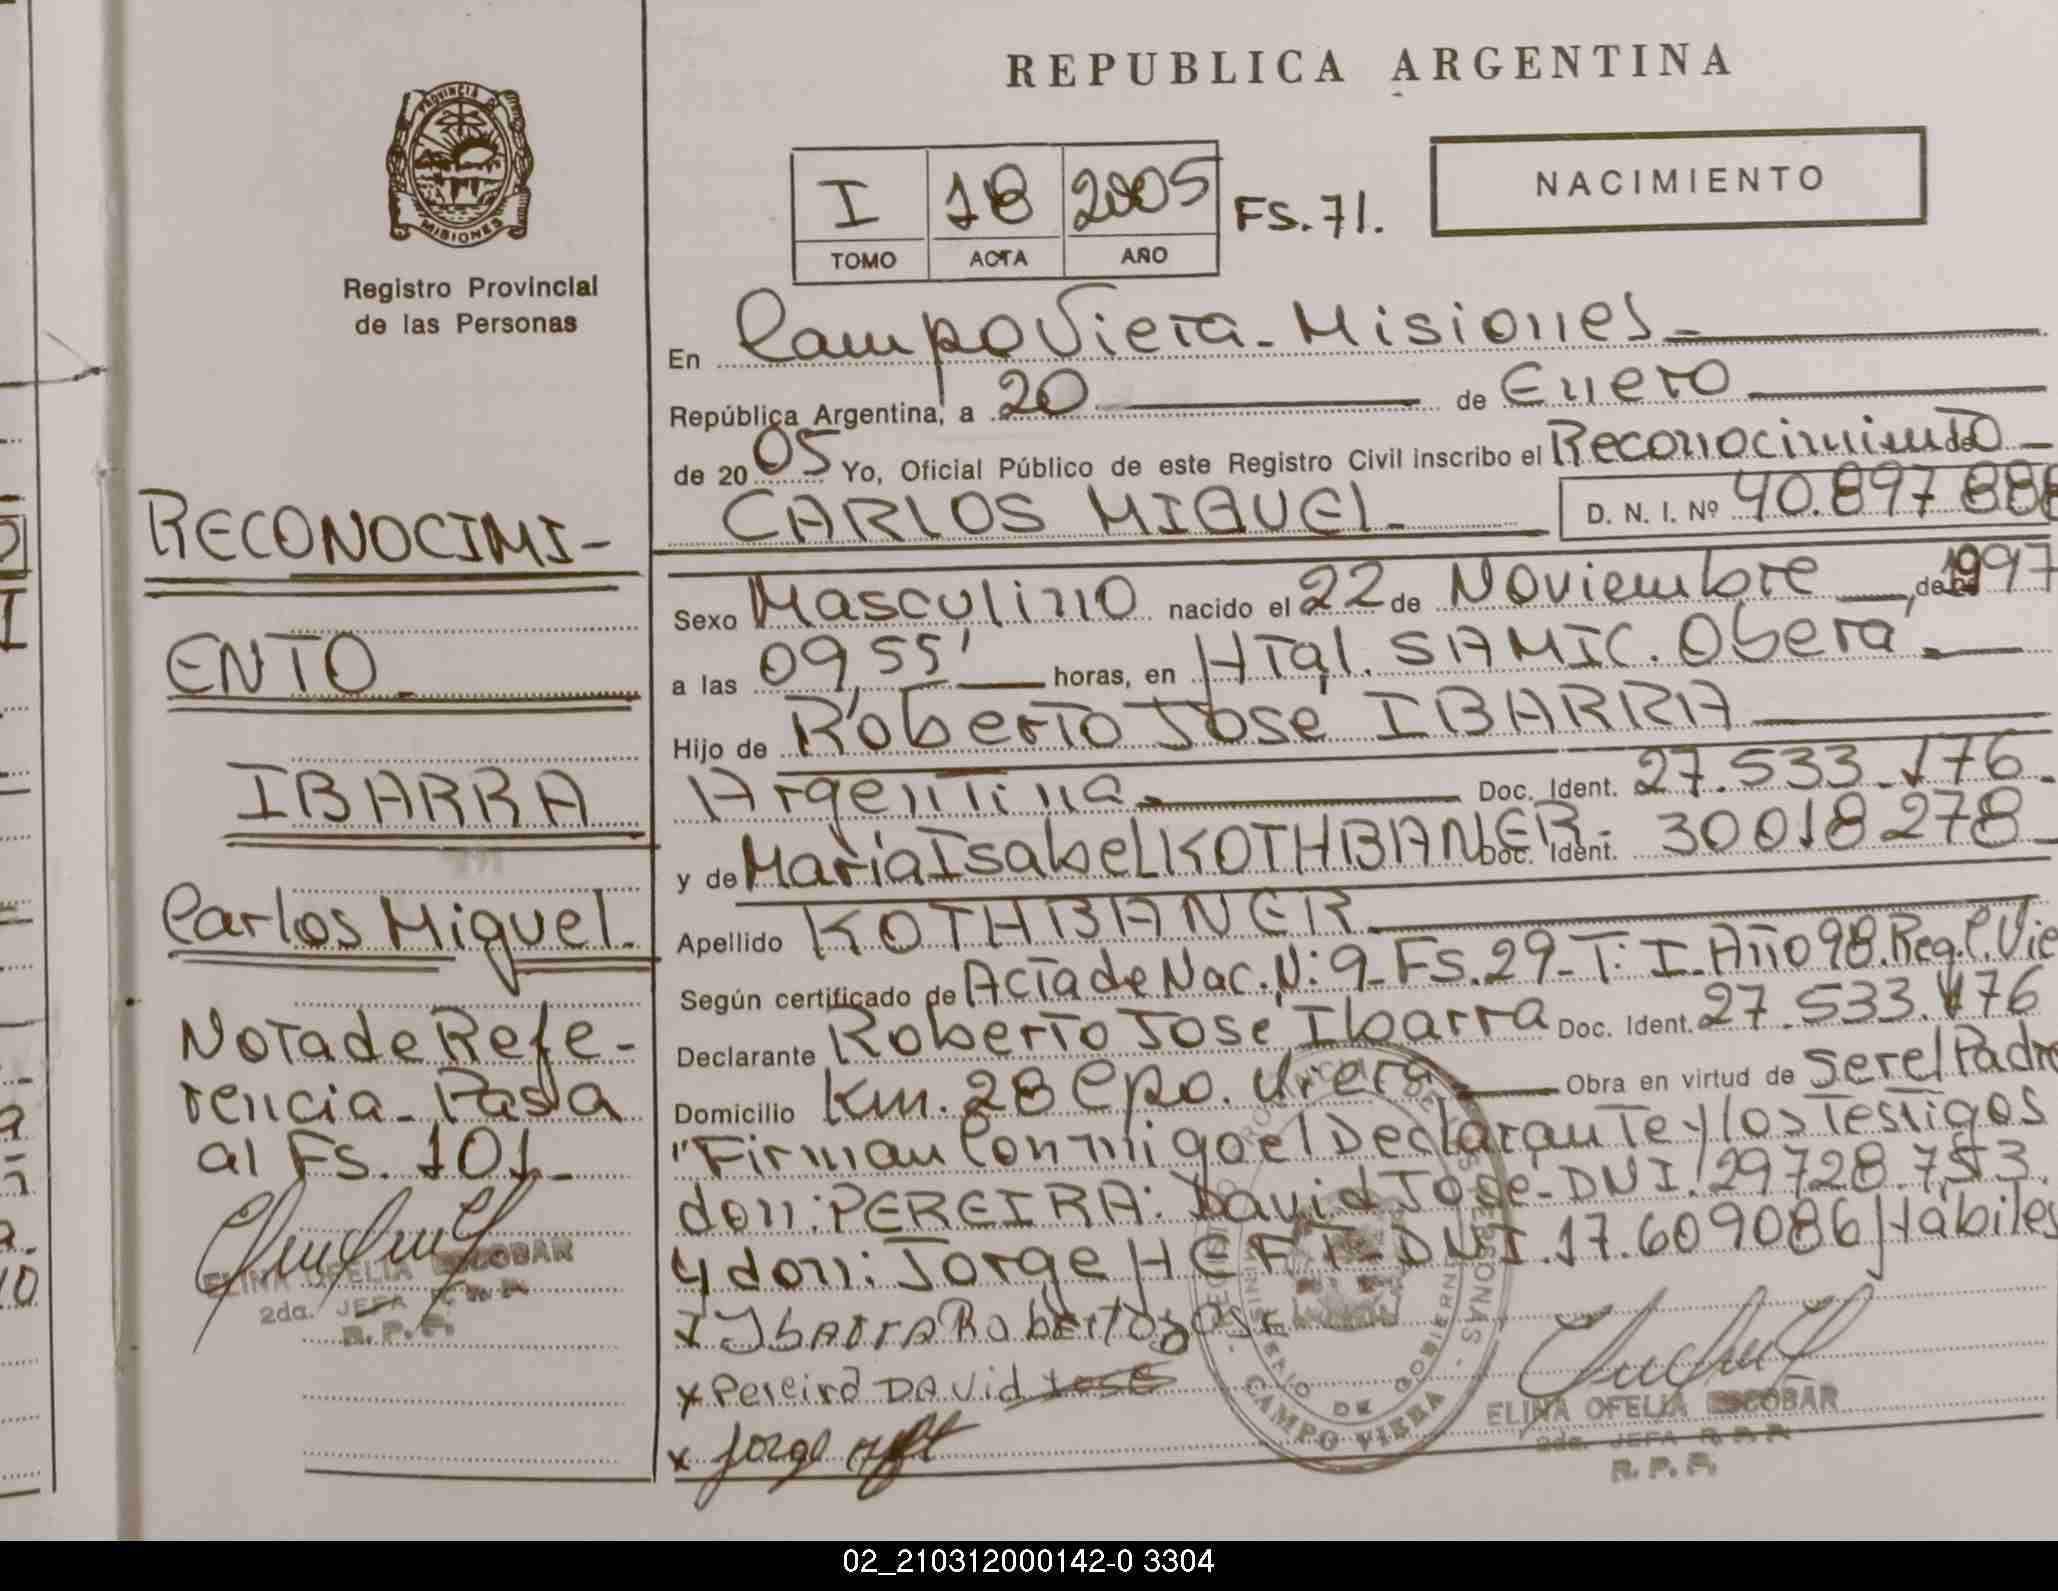 REPUBLICA ARGENTINA
PROVINCIA DE MISIONES
Registro Provincial
de las Personas
I 18 2005 FS. 71.
TOMO ACTA AÑO
NACIMIENTO
En Campo Viera - Misiones
República Argentina, a 20 de Enero
de 2005 Yo, Oficial Público de este Registro Civil inscribo el Reconocimiento de
CARLOS MIGUEL - D. N. I. Nº 40.897.888
Sexo Masculino nacido el 22 de Noviembre, de 1997
a las 09,55' horas, en Htal. SAMIC. Oberá
Hijo de Roberto Jose IBARRA
Argentina Doc. Ident. 27.533.176.
y de María Isabel KOTHBANER - Doc. Ident. 30018278
Apellido KOTHBANER
Según certificado de Acta de Nac. N: 9 - Fs. 29 - T: I - Año 98. Reg. C. Vie
Declarante Roberto José Ibarra Doc. Ident. 27.533.176
Domicilio Km. 28 Cpo. Viera Obra en virtud de ser el Padre
"Firman Conmigo el Declarante y los Testigos
don: PEREIRA: David José - DNI. 29728.753.
y don: Jorge HEFT - DNI. 17.609086 Hábiles
x Ibarra Roberto Jose
x Pereira David José
x Jorge Heft
RECONOCIMI-
ENTO
IBARRA
Carlos Miguel.
Nota de Refe-
rencia - Pasa
al Fs. 101 -
ELINA OFELIA ESCOBAR
2da. JEFA
R. P. P.
CAMPO VIERA
MINISTERIO DE GOBIERNO
ELINA OFELIA ESCOBAR
2da. JEFA R. P. P.
R. P. P.
02_210312000142-0 3304